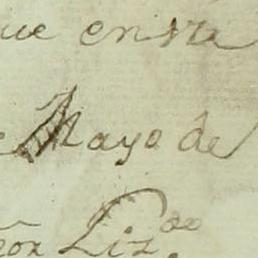 que en sta
e Mayo de
ñor Liz.do